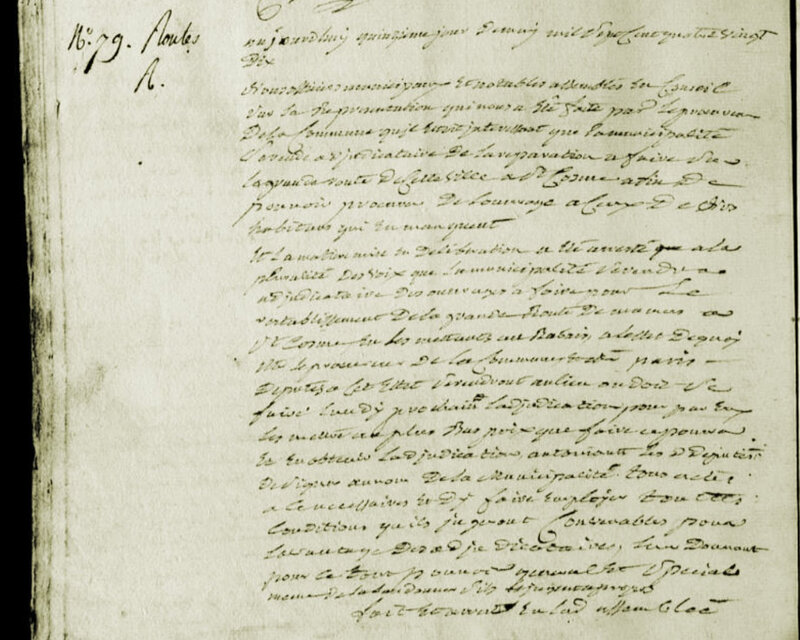 N.° 79. Routes
R.
aujourdhuy quinzieme jour de may mil sept Cent quatre vingt
Dix
Nous officiers municipaux et notables assemblés en Conseil
sur la Representation qui nous a été faite par le procureur
De la Commune qu'il seroit interessant que la municipalité
se rende adjudicataire De la reparation a faire De
la grande route De Cette ville a St Cosme afin De
pouvoir procurer De L'ouvrage a Ceux De Nos
habitans qui En manquent
Et La matiere mise En Deliberation a été arresté que a la
pluralité Des voix que La municipalité se rendra
adjudicataire Des ouvrages a faire pour Le
retablissement De la grande Route De mamers a
St Cosme En les mettant au Rabais, a leffet Dequoy
Mr le procureur De la Commune et Mr paris
Deputés a Cet Effet se rendront au lieu ou Doit se
faire Lundy prochain Ladjudication pour par Eux
Les mettre au plus Bas prix que faire ce poura
Et En obtenir Ladjudication, autorisons les Deputés
De signer au nom De la Municipalité tous actes
a Ce necessaires Et D'y faire Employer toutes
Conditions qu'ils jugeront Convenables pour
Lavantage Des adjudicataires, Leur Donnant
pour Ce tout pouvoir general Et special
meme De
fait Et arresté En Lad. assemblée